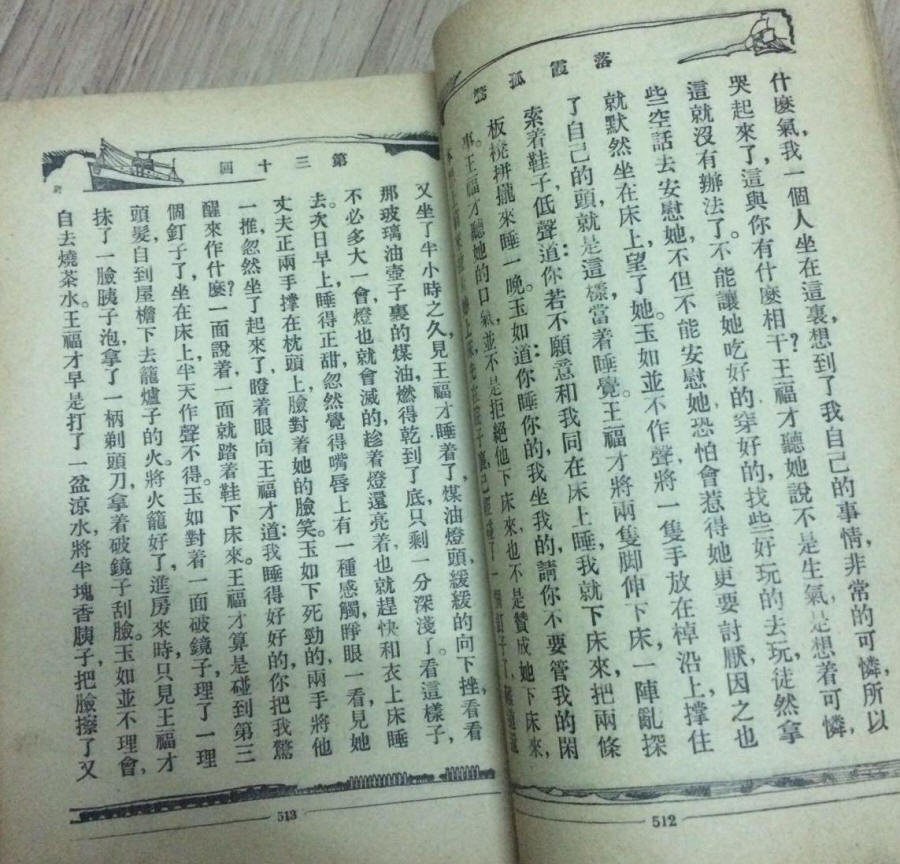 落霞孤鶩
什麼氣,我一個人坐在這裏想到了我自己的事情,非常的可憐,所以
哭起來了,這與你有什麼相干?王福才聽她說不是生氣,是想着可憐,
這就沒有辦法了。不能讓她吃好的穿好的,找些好玩的去玩,徒然拿
些空話去安慰她,不但不能安慰她,恐怕會惹得她更要討厭,因之也
就默然坐在床上,望了她。玉如並不作聲,將一隻手放在棹沿上,撑住
了自己的頭,就是這樣當着睡覺。王福才將兩隻脚伸下床,一陣亂探
索着鞋子,低聲道:你若不願意和我同在床上睡,我就下床來,把兩條
板櫈拼攏來睡一晚。玉如道:你睡你的,我坐我的,請你不要管我的閑
事。王福才聽她的口氣,並不是拒絕他下床來,也不是贊成她下床來,
512
第三十回
又坐了半小時之久,見王福才睡着了,煤油燈頭,緩緩的向下挫,看看
那玻璃油壺子裏的煤油,燃得乾到了底,只剩一分深淺了,看這樣子,
不必多大一會,燈也就會滅的,趁着燈還亮着,也就趕快和衣上床睡
去。次日早上,睡得正甜,忽然覺得嘴唇上有一種感觸,睜眼一看,見她
丈夫正兩手撑在枕頭上,臉對着她的臉笑。玉如下死勁的兩手將他
一推,忽然坐了起來了,瞪着眼向王福才道:我睡得好好的,你把我驚
醒來作什麼?一面說着,一面就踏着鞋下床來。王福才算是碰到第三
個釘子了,坐在床上,半天作聲不得。玉如對着一面破鏡子,理了一理
頭髮,自到屋檐下去籠爐子的火。將火籠好了,進房來時,只見王福才
抹了一臉胰子泡,拿了一柄剃頭刀,拿着破鏡子刮臉。玉如並不理會,
自去燒茶水。王福才早是打了一盆涼水,將半塊香胰子,把臉擦了又
513